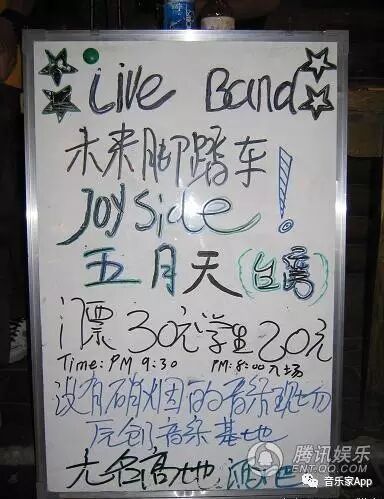 Live Band
未来脚踏车
Joyside!
五月天(台湾)
门票30元学生20元
Time:PM 9:30 PM:8:00入场
没有硝烟的音乐现场
原创音乐基地
无名高地 酒吧
腾讯娱乐
ENT.QQ.COM
音乐家App